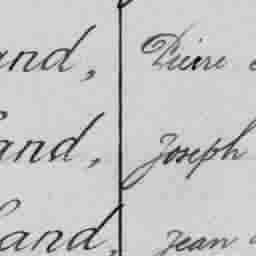 and, Pierre
and, Joseph
and, Jean